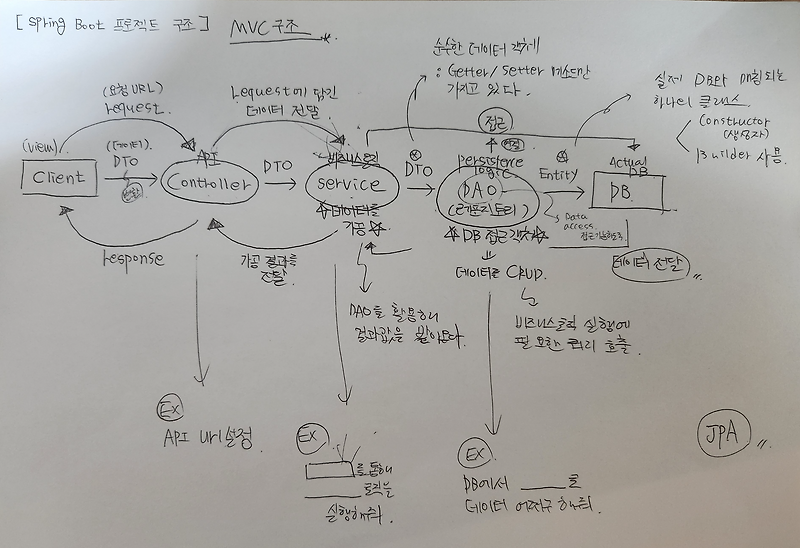 [ Spring Boot 프로젝트 구조 ] MVC 구조
순수한 데이터 객체
: Getter / Setter 메소드만
가지고 있다.
실제 DB와 매칭되는
하나의 클래스.
Constructor
(생성자)
Builder 사용.
(요청 URL)
request
request에 담긴
데이터 전달
접근
(view)
Client
(데이터)
DTO
API
Controller
DTO
비즈니스로직
Service
데이터를
가공
DTO
persistence
logic
DAO
(레포지토리)
DB 접근 객체
Entity
Data
access.
Actual
DB
DB
response
가공 결과를
전달
데이터 전달
데이터로 CRUD.
DAO를 활용해
결과값을 받아온다.
비즈니스로직 실행에
필요한 쿼리 호출.
EX
API URI 설정.
EX
를 통해
로직을
실행해줘
EX
DB에서 를
데이터 어쩌구 해줘.
JPA